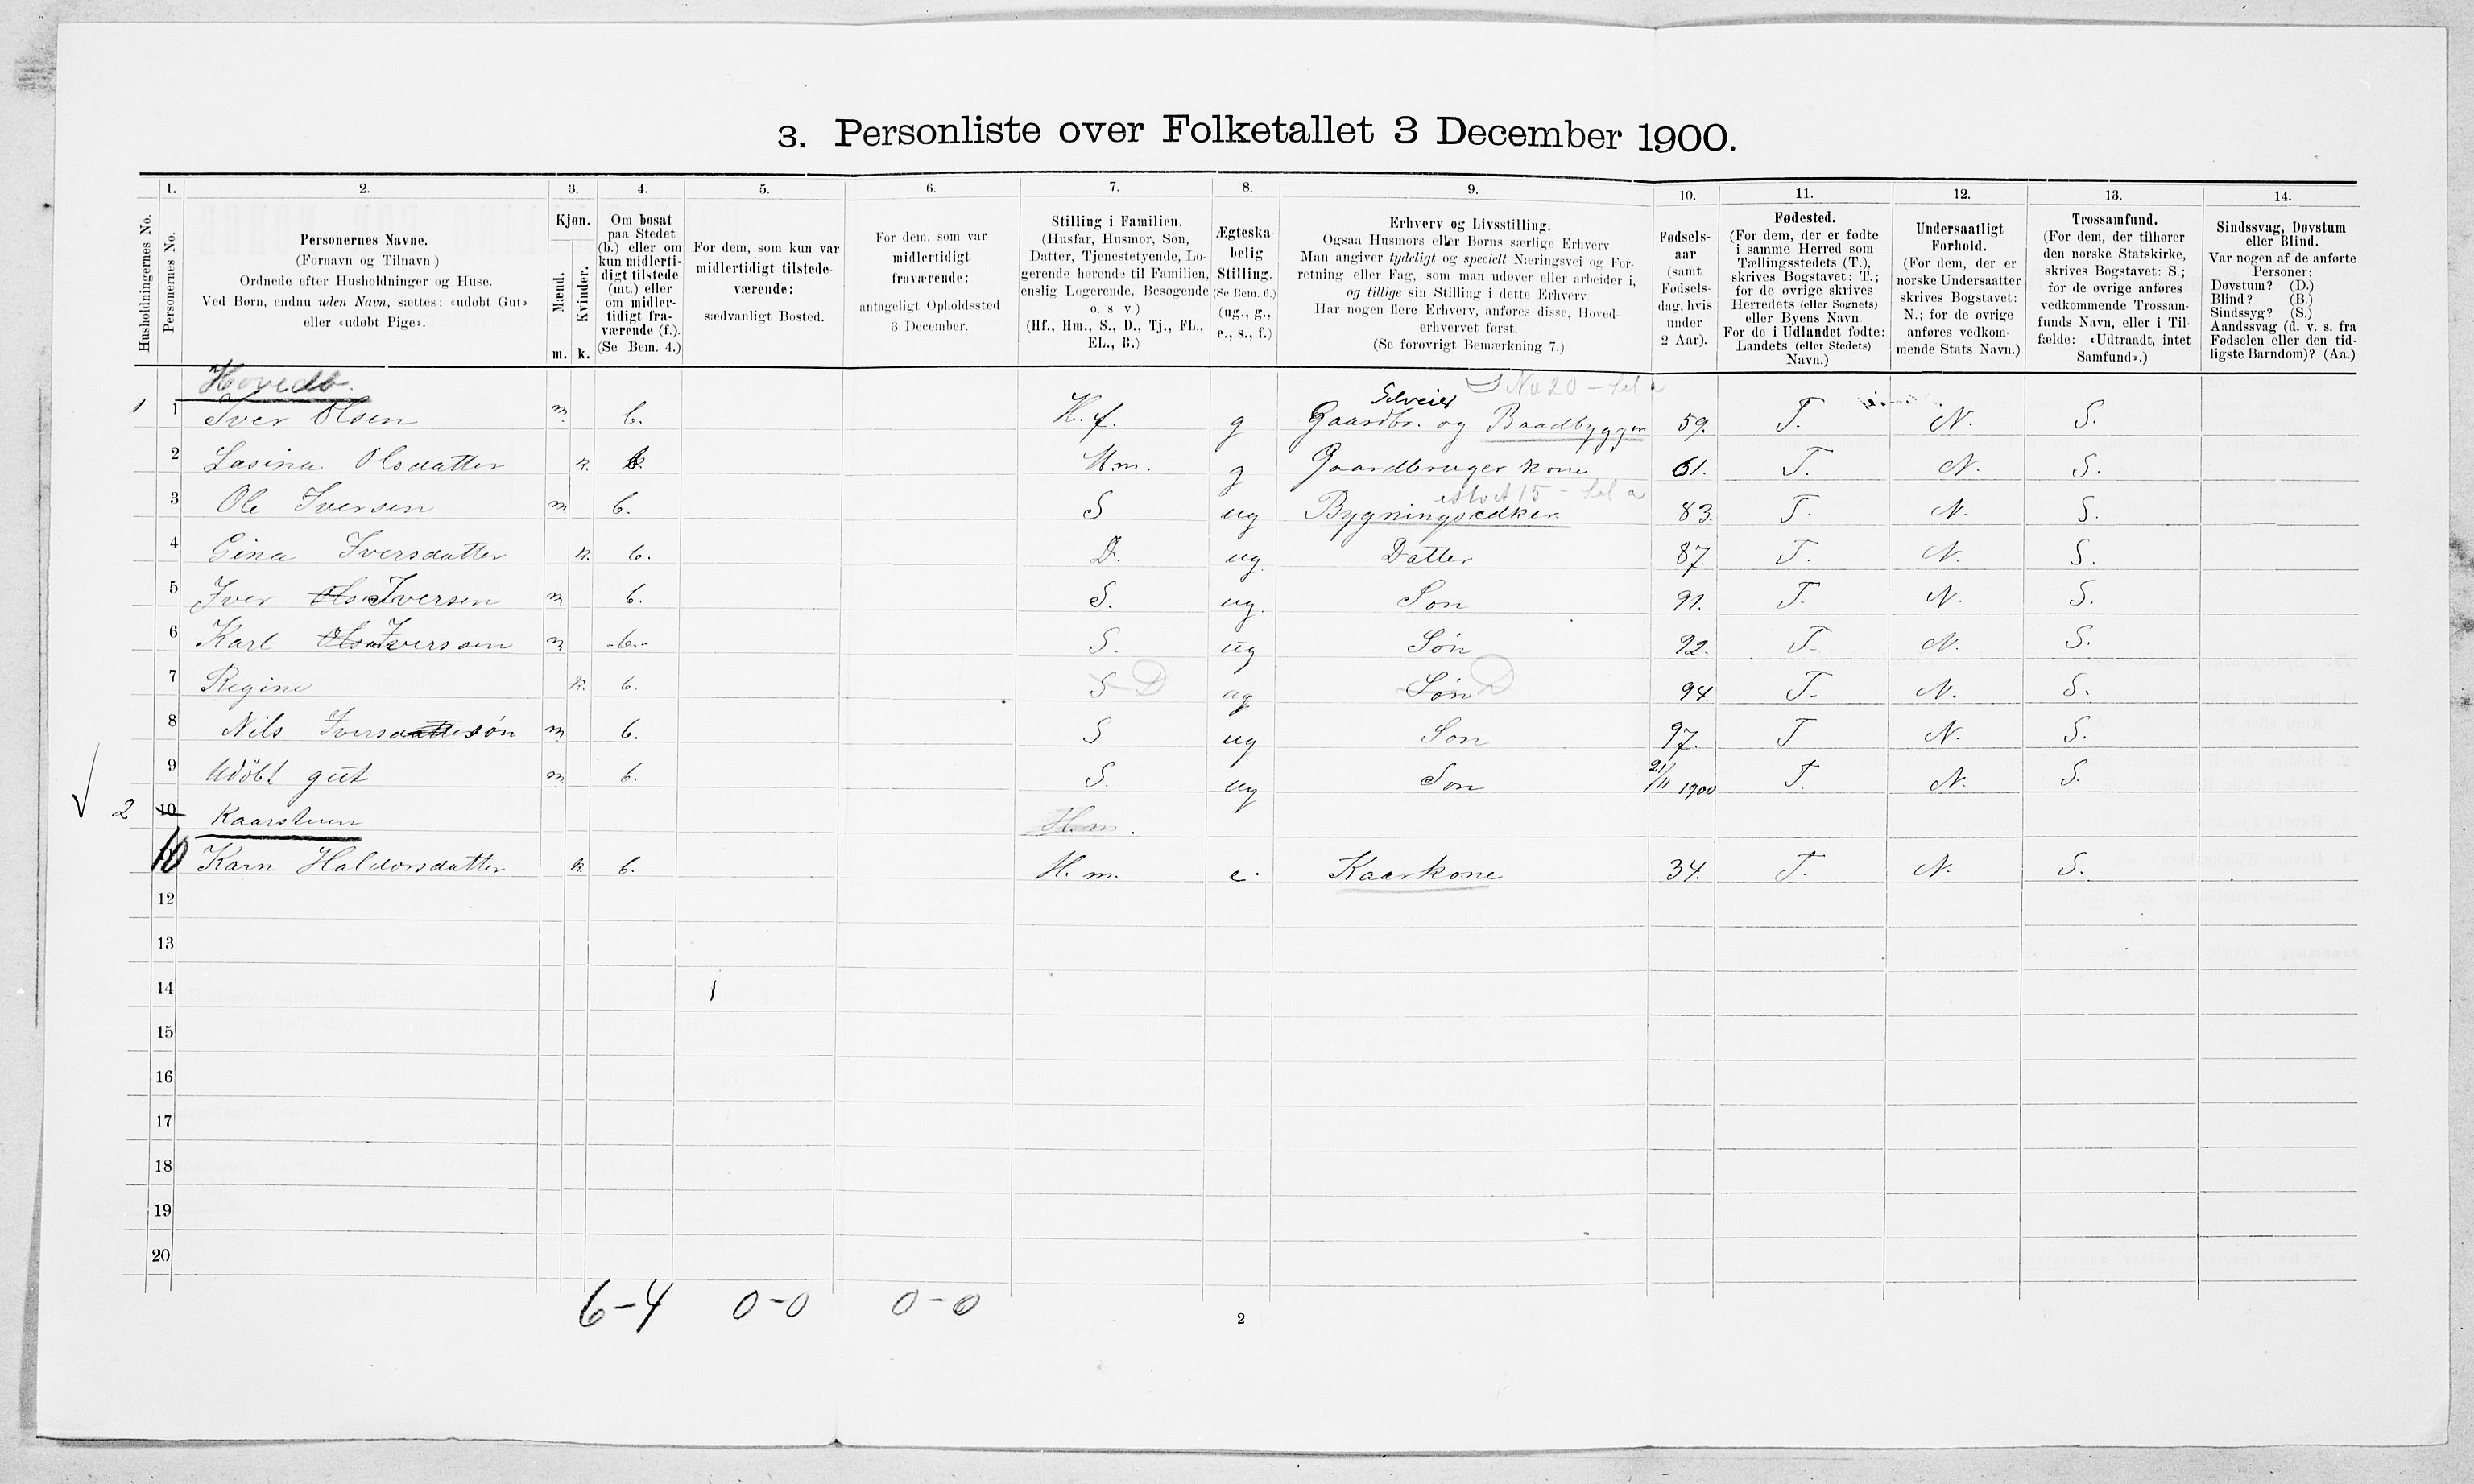 3. Personliste over Folketallet 3 December 1900.
1. 2. 3. 4. 5. 6. 7. 8. 9. 10. 11. 12. 13. 14.
Husholdningernes No.
Personernes No.
Personernes Navne.
(Fornavn og Tilnavn )
Ordnede efter Husholdninger og Huse.
Ved Børn, endnu uden Navn, sættes: «udøbt Gut»
eller «udøbt Pige».
Kjøn.
Mænd.
Kvinder.
m. k.
Om bosat
paa Stedet
(b.) eller om
kun midlerti-
digt tilstede
(mt.) eller
om midler-
tidigt fra-
værende (f.).
(Se Bem. 4.)
For dem, som kun var
midlertidigt tilstede-
værende:
sædvanligt Bosted.
For dem, som var
midlertidigt
fraværende:
antageligt Opholdssted
3 December.
Stilling i Familien.
(Husfar, Husmor, Søn,
Datter, Tjenestetyende, Lo-
gerende hørende til Familien,
enslig Logerende, Besøgende
o. s v.)
(Hf., Hm., S., D., Tj., FL.,
EL., B.)
Ægteska-
belig
Stilling.
(Se Bem. 6.)
(ug., g.,
e., s., f.)
Erhverv og Livsstilling.
Ogsaa Husmors eller Børns særlige Erhverv.
Man angiver tydeligt og specielt Næringsvei og For-
retning eller Fag, som man udøver eller arbeider i,
og tillige sin Stilling i dette Erhverv
Har nogen flere Erhverv, anføres disse, Hoved-
erhvervet først.
(Se forøvrigt Bemærkning 7.)
Fødsels-
aar
(samt
Fødsels-
dag, hvis
under
2 Aar).
Fødested.
(For dem, der er fødte
i samme Herred som
Tællingsstedets (T.),
skrives Bogstavet: T.;
for de øvrige skrives
Herredets (eller Sognets)
eller Byens Navn
For de i Udlandet fødte:
Landets (eller Stedets)
Navn.)
Undersaatligt
Forhold.
(For dem, der er
norske Undersaatter
skrives Bogstavet:
N.; for de øvrige
anføres vedkom-
mende Stats Navn.)
Trossamfund.
(For dem, der tilhører
den norske Statskirke,
skrives Bogstavet: S.;
for de øvrige anføres
vedkommende Trossam-
funds Navn, eller i Til-
fælde: «Udtraadt, intet
Samfund».)
Sindssvag, Døvstum
eller Blind.
Var nogen af de anførte
Personer:
Døvstum? (D.)
Blind? (B.)
Sindssyg? (S.)
Aandssvag (d. v. s. fra
Fødselen eller den tid-
ligste Barndom)? (Aa.)
Hovedb. No 20
Selveier
1 1 Iver Olsen m b. H. f. g Gaardbr. og Baadbygger 59. T. N. S.
2 Lasina Olsdatter k. b. H m. g Gaardbruger kone 61. T. N. S.
3 Ole Iversen m b. S ug 83. T. N. S.
4 Gina Iversdatter k. b. D. ug. Datter 87. T. N. S.
5 Iver Iversen m b. S. ug. Søn 91. T. N. S.
6 Karl Iverssen m b. S. ug Søn 92. T. N. S.
7 Regine k. b. S D ug Søn D 94. T. N. S.
8 Nils Iverssøn m b. S ug Søn 97. T N. S.
9 Udöbt gut m b. S. ug Søn 21/11 1900 T. N. S.
2 10 Kaarstuen H. m.
10 Karn Haldorsdatter k b. H. m. e. Kaarkone 34. T. N. S.
12
13
14
15
16
17
18
19
20
6-4 0-0 0-0
2